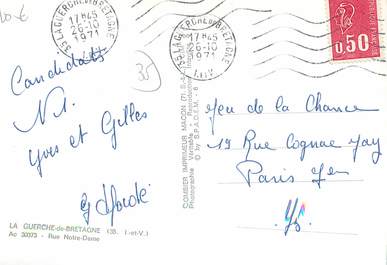 10 €
35 LA GUERCHE DE BRETAGNE
17H45
26-10
1971
35 LA GUERCHE DE BRETAGNE
17H45
26-10
1971
0,50
35
Candidats
N 1.
Yves et Gilles
COMBIER IMPRIMEUR MACON (71)
Photographie Véritable -
© by S.P.A.D.E.M.
Jeu de la Chance
19 Rue Cognac Jay
Paris 7em
LA GUERCHE-de-BRETAGNE (35. I.-et-V.)
Ac 30073 - Rue Notre-Dame